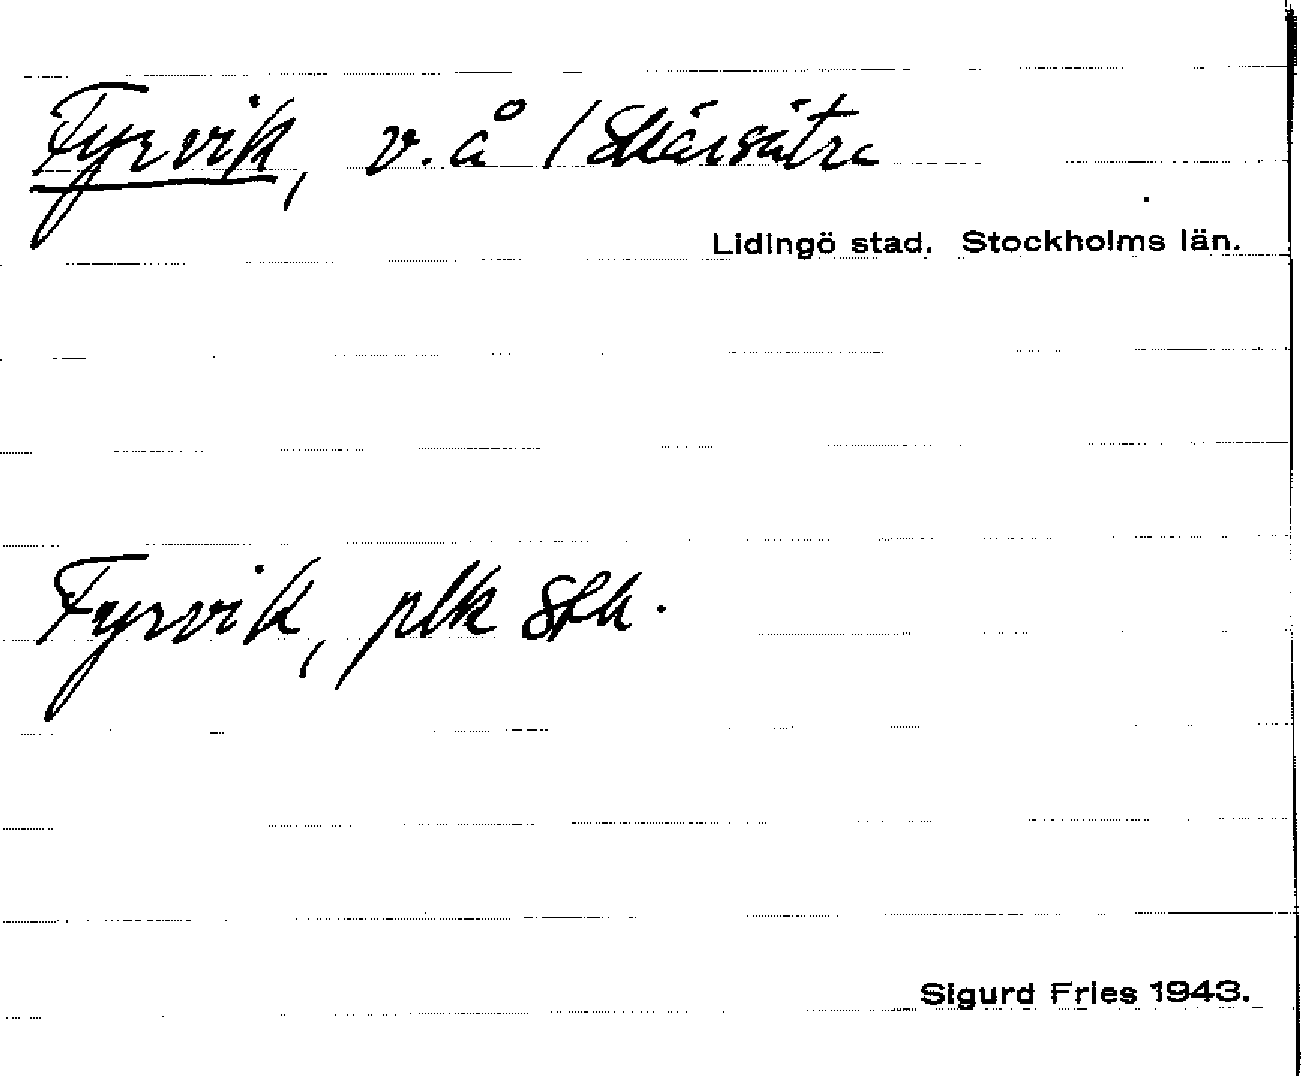 Fyrvik, v. å / Skärsätra
Lidingö stad. Stockholms län.
Fyrvik, plk Sthm.
Sigurd Fries 1943.